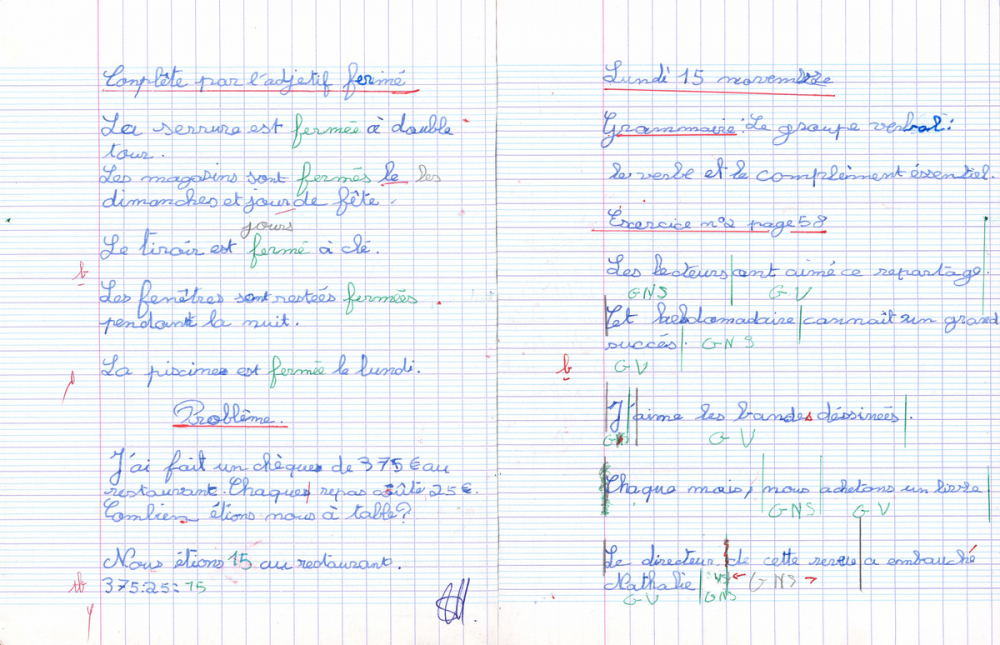 Complète par l'adjetif fermé
La serrure est fermée à double
tour.
Les magasins sont fermés le les
dimanches et jour de fête.
jours
Le tiroir est fermé à clé.
b
Les fenêtres sont restées fermées
pendant la nuit.
La piscine est fermée le lundi.
Problème.
J'ai fait un chèque de 375 € au
restaurant. Chaque repas a coûté 25 €.
Combien étions nous à table?
Nous étions 15 au restaurant.
tb 375:25=15
Lundi 15 novembre
Grammaire: Le groupe verbal:
le verbe et le complèment éssentiel.
Exercice n°2 page 58
Les lecteurs ont aimé ce repartage.
GNS GV
Cet hebdomadaire connaît un grand
succés. GNS
GV
b
J'aime les bandes déssinées.
GNS GV
Chaque mois, nous achetons un livre
GNS GV
Le directeur de cette revue a embauché
Nathalie VS ← GNS →
GV GNS